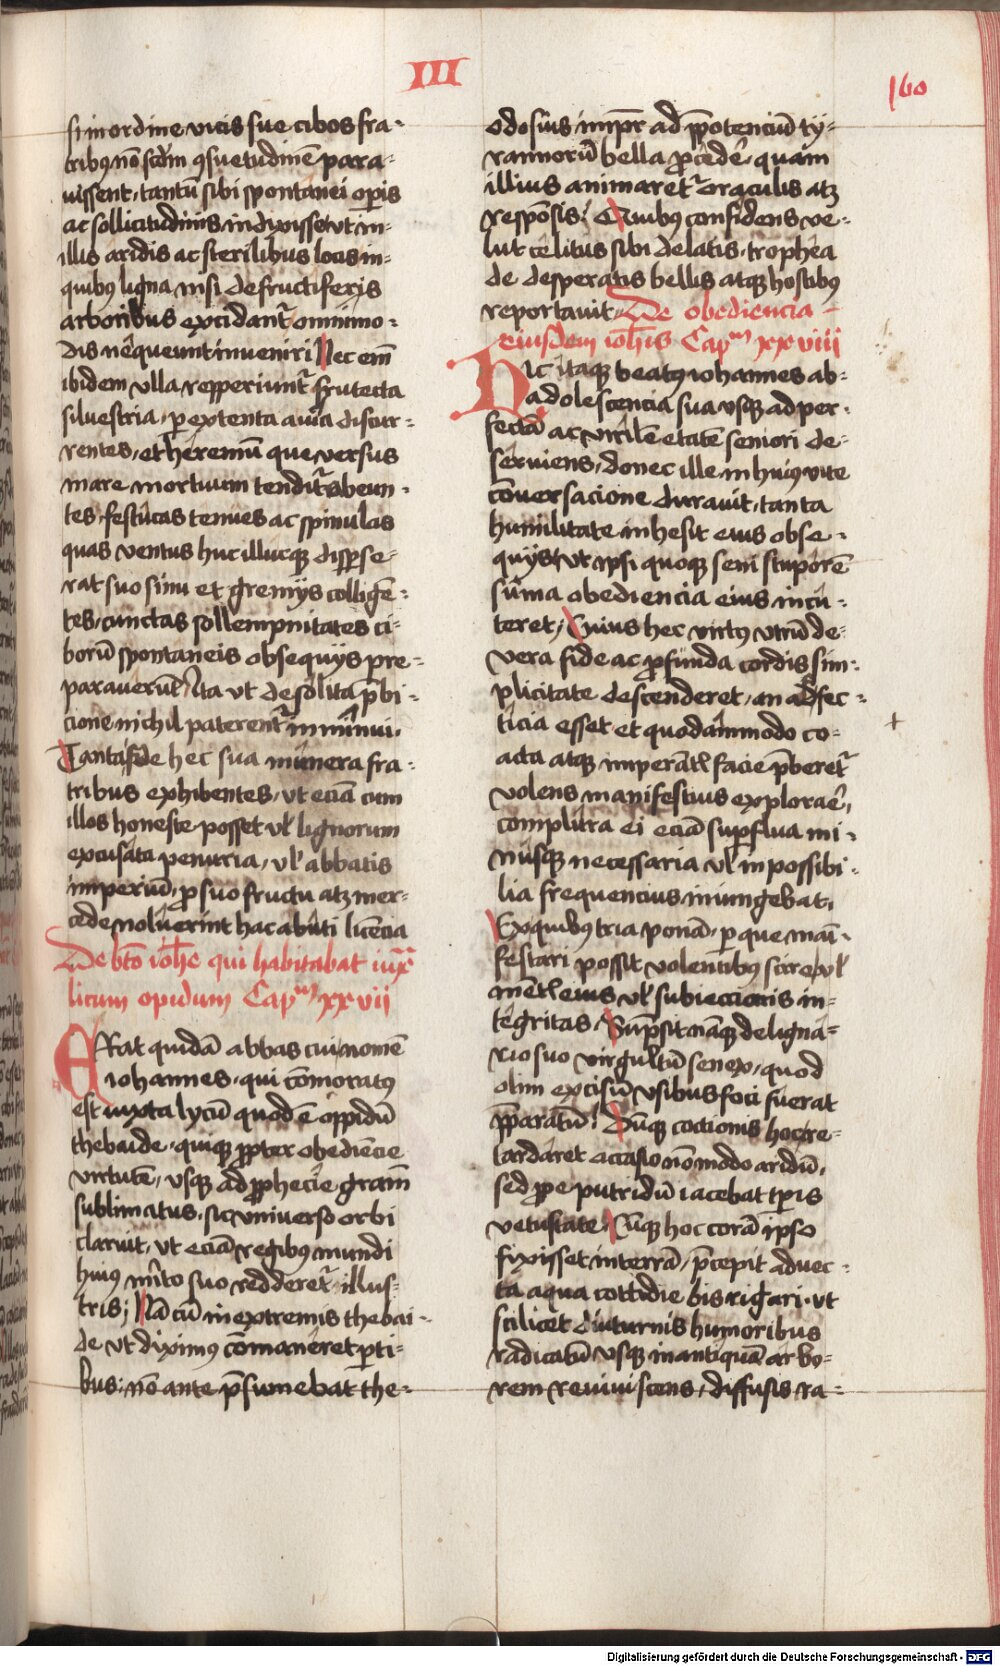 III
160
si in ordine vicis sue cibos fra-
tribꝰ nō scḋm ꝯsuetudinē para-
uissent, tantū sibi spontanei oꝑis
ac sollicitudinis indixisset ut in
illis aridis ac sterilibus locis in
quibꝰ ligna nisi de fructiferis
arboribus excidant᷑ omnimo-
dis nequeunt inueniri Nec em̄
ibidem vlla repperiunt᷑ frutecta
siluestria, ꝑ extenta auia discur-
rentes, et heremū que versus
mare mortuum tendit᷑ abeun-
tes, festucas tenues ac spinulas
quas ventus huc illucqꝫ disꝑse-
rat suo sinu et gremijs collige-
tes, cunctas sollempnitates ci-
borū spontaneis obsequijs pre-
parauerūt, Ita vt de solita p̄bi-
cione nichil paterent᷑ inminui.
Tanta fide hec sua munera fra-
tribus exhibentes, vt eciā cum
illos honeste posset vl̓ lignorum
excusāta penuria, vl̓ abbatis
imperiū, ꝓ suo fructu atqꝫ mer-
cede noluerint hac abuti licēcia
De btō ioh̄e qui habitabat iuxͣ
licum opidum Capᵐ xxvii
ERat quidā abbas cui nomē
iohannes, qui cōmoratꝰ
est iuxta lycū quod ē oppidū
thebaide, quiqꝫ ꝓpter obediēcie
virtutē, vsqꝫ ad ꝓphecie gram̄
sublimatus, sic vniuerso orbi
claruit, vt eciā regibꝰ mundi
huiꝰ m̄ito suo redderet᷑ illus-
tris; Nā cū in extremis thebai-
de vt diximꝰ cōmaneret ꝑti-
bus, nō ante p̄sumebat the-
odosius impr̄ ad p̄potenciū ty-
rannorū bella ꝓcede᷑, quam
illius animaret᷑ oraculis atqꝫ
respōsis, Quibꝰ confidens ve-
lut celitus sibi delatis, trophea
de desperatis bellis atqꝫ hostibꝰ
reportauit, De obediencia
eiusdem ioh̄is Capᵐ xxviii
HIc itaqꝫ beatꝰ iohannes ab
adolescencia sua vsqꝫ ad per-
fectā ac virilē etatē seniori de-
seruiens, donec ille in huiꝰ vite
cōuersacione durauit, tanta
humilitate inhesit eius obse-
quijs vt ipsi quoqꝫ seni stuporē
sūma obediencia eius incu-
teret, Cuius hec virtꝰ vtrū de
vera fide ac ꝓfunda cordis sim-
plicitate descenderet, an adfec-
ticia esset et quodāmodo co-
acta atqꝫ imperātis facie p̄beret᷑
volens manifestius explorae᷑,
complura ei eciā suꝑflua mi-
nusqꝫ necessaria vl̓ impossibi-
lia frequencius iniungebat,
Ex quibꝰ tria ponā, ꝑ que mani-
festari possit volentibꝰ scire vl̓
mētis eius vl̓ subieccionis in-
tegritas, Sūpsit nāqꝫ de ligna-
rio suo virgultū senex, quod
olim excisū vsibus foci fuerat
p̄paratū, Dūqꝫ coctionis hoc re-
tardaret occasio nō modo aridū,
sed ꝓpe putridū iacebat tꝑis
vetustate, Cūqꝫ hoc corā ipso
fixisset in terrā, p̄cepit aduec-
ta aqua cottidie bis rigari, vt
scilicet diuturnis humoribus
radicatū vsqꝫ in antiquā arbo-
rem reuiuiscens, diffusis ra-
Digitalisierung gefördert durch die Deutsche Forschungsgemeinschaft - DFG